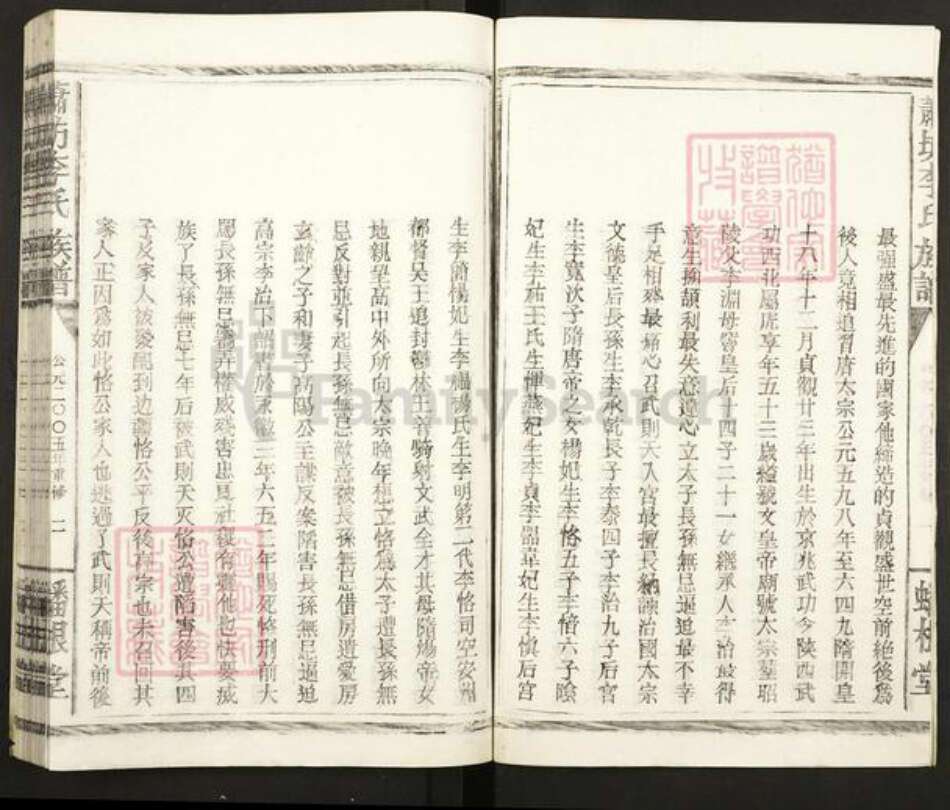 蕭坊李氏族譜
蟠根堂
最強盛最先進的國家他締造的貞觀盛世空前絕後爲
後人竟相追胥唐太宗公元五九八年至六四九隋開皇
十八年十二月貞觀廿三年出生於京兆武功今陕西武
功西北屬庑享年五十三歲謚貌文皇帝廟號太宗墓昭
陵父李淵母竇皇后十四子二十一女繼承人李治最得
意生擒頡利最失意違心立太子長孫無忌逼迫最不幸
手足相殘最痛心召武則天入宮最擅長納諫治國太宗
文德皇后長孫生李承乾長子李泰四子李治九子后宮
生李寬次子隋唐帝之女楊妃生李恪五子李愔六子陰
妃生李祐王氏生惲燕妃生李貞李嚣韋妃生李慎后宮
生李簡楊妃生李福楊氏生李明第二代李恪司空安州
都督吴王追封鬱林王善騎射文武全才其母隋煬帝女
地親望高中外所向太宗晚年想立恪爲太子遭長孫無
忌反對並引起長孫無忌敵意被長孫無忌借房遺愛房
玄齡之子和妻子高陽公主謀反案陷害長孫無忌逼迫
高宗李治下詔書於永徽三年六五二年賜死恪刑前大
罵長孫無忌竊弄權威殘害忠良社稷有靈他也快要威
族了長孫無忌七年后被武則天灭恪公遭陷害後其四
子及家人被發配到边疆恪公平反後高宗也未召回其
家人正因爲如此恪公家人也逃過了武則天稱帝前後
蕭坊李氏族譜
公元二〇〇五年重修
二
蟠根堂
FamilySearch